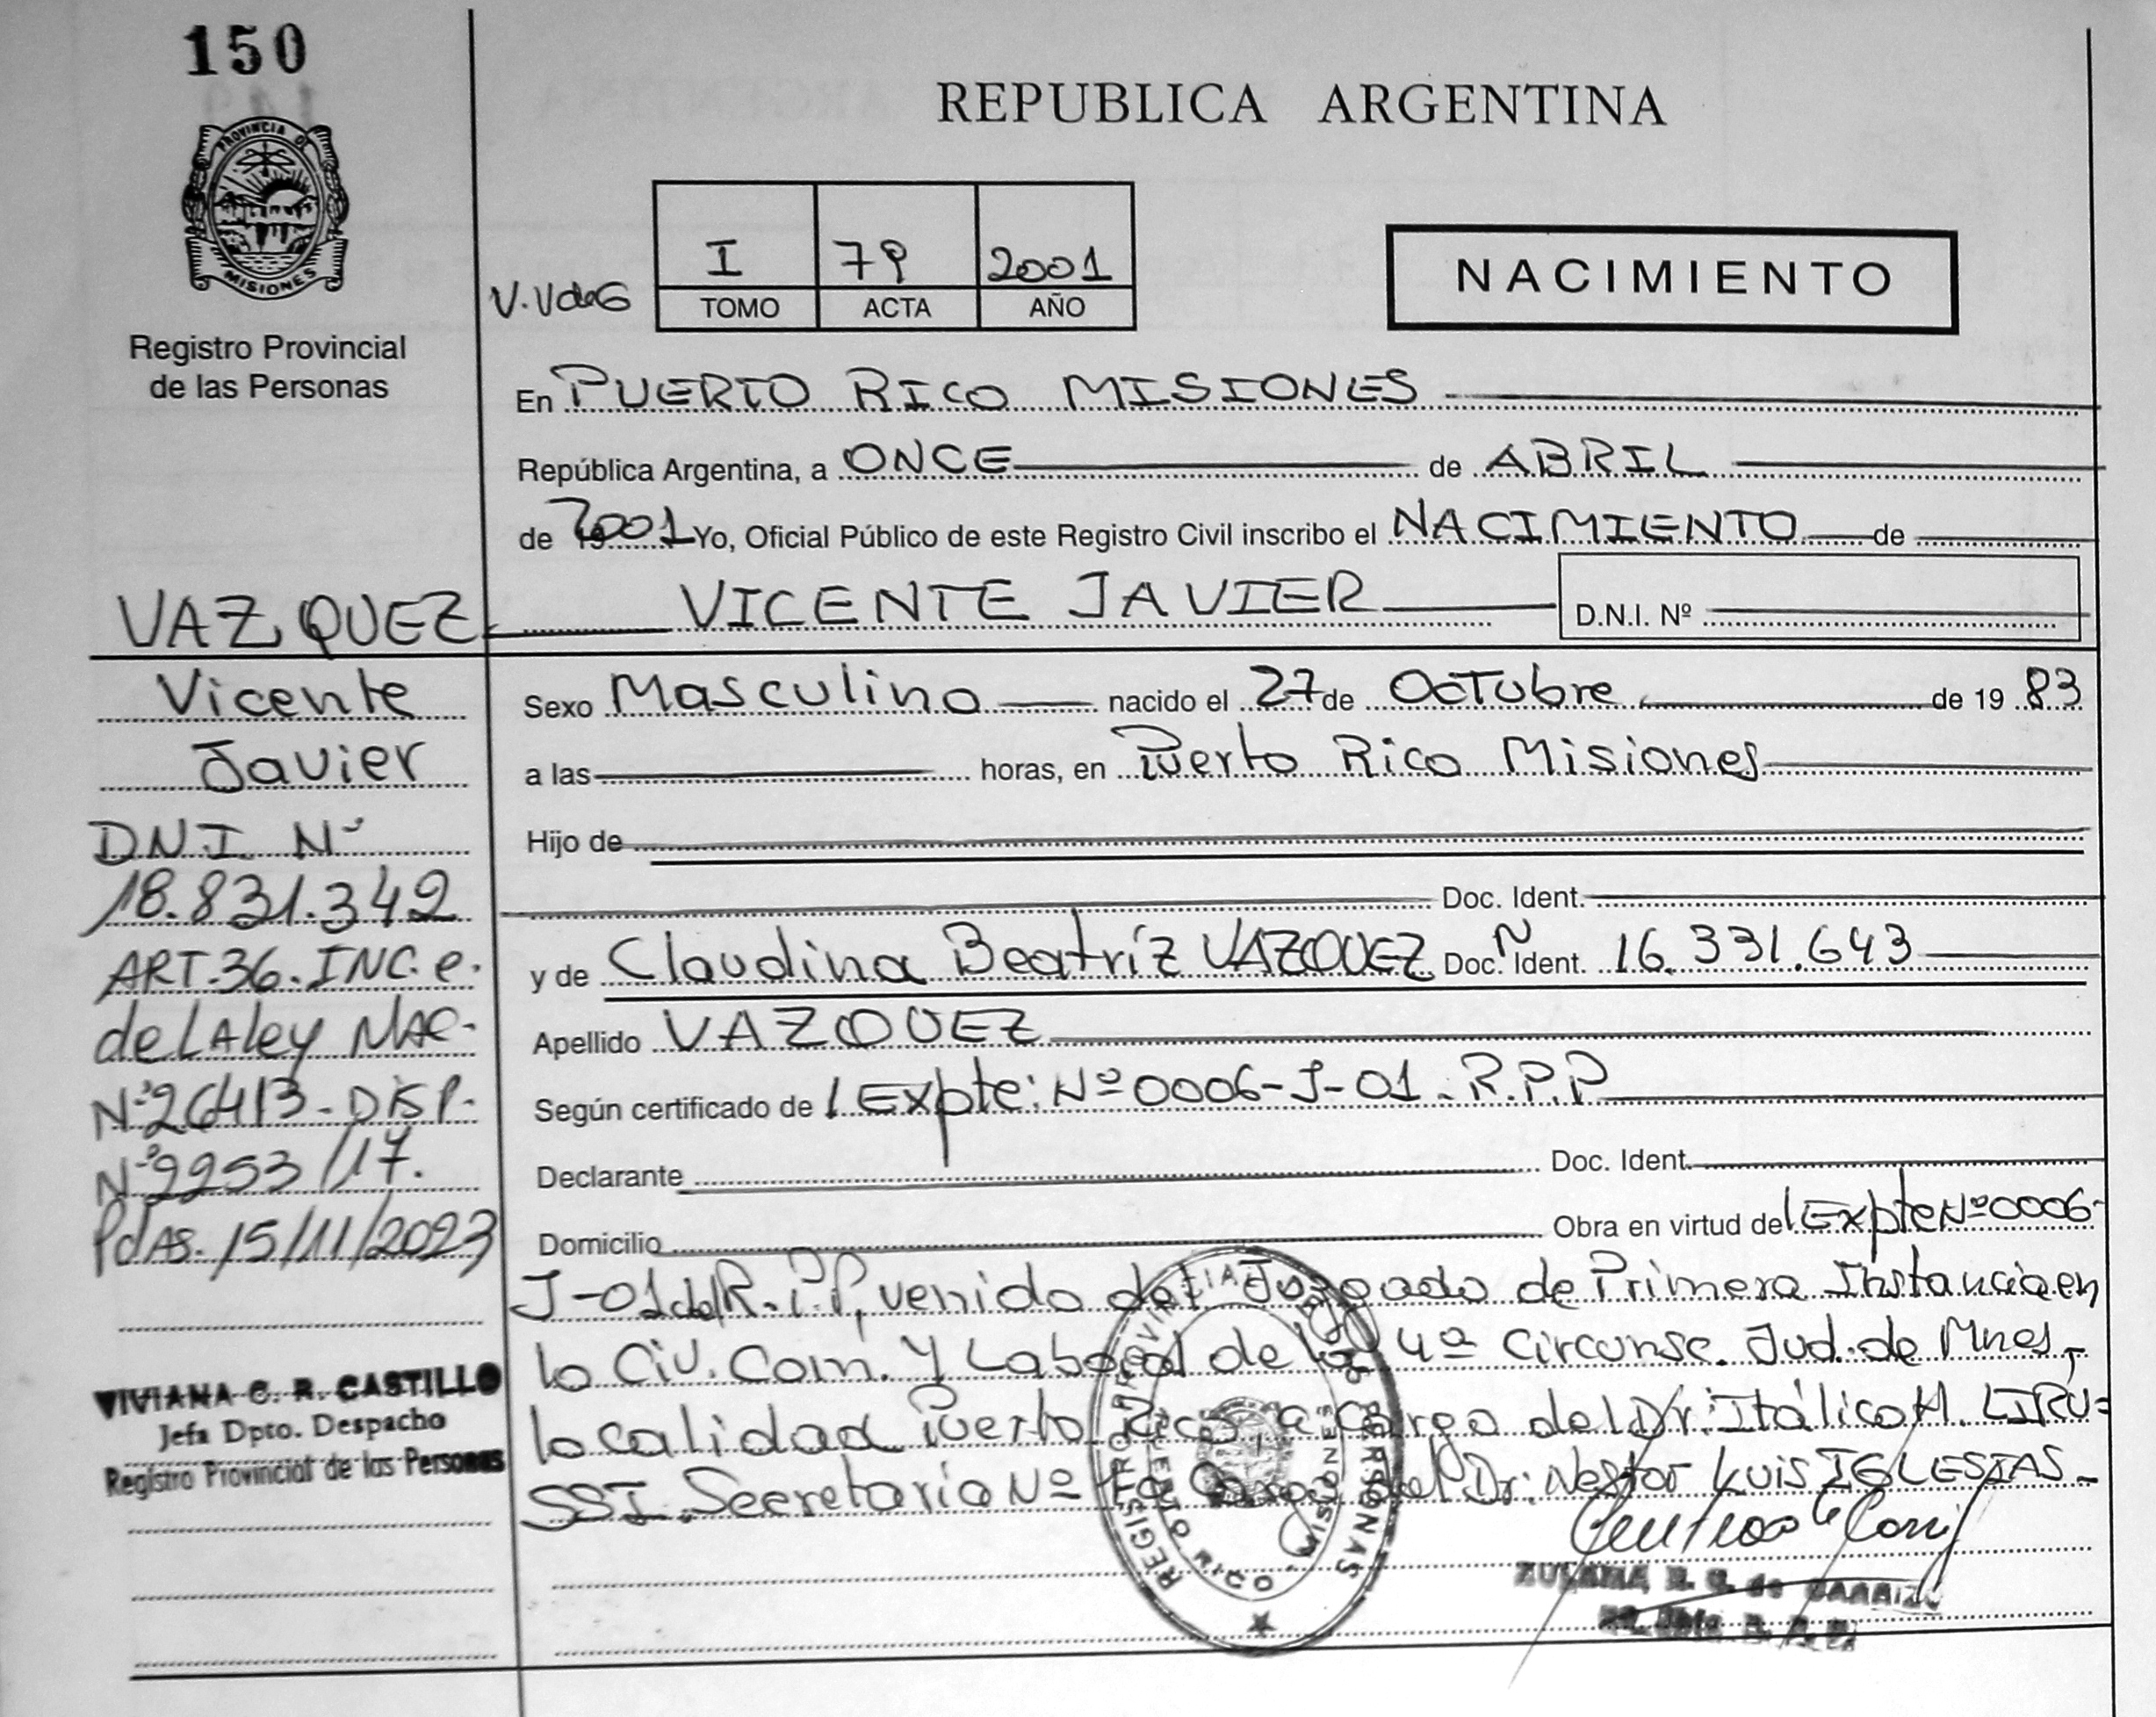 150
PROVINCIA DE
MISIONES
Registro Provincial
de las Personas
REPUBLICA ARGENTINA
I 79 2001
V.VdeG TOMO ACTA AÑO
NACIMIENTO
En PUERTO RICO MISIONES
República Argentina, a ONCE de ABRIL
de 2001 Yo, Oficial Público de este Registro Civil inscribo el NACIMIENTO de
VICENTE JAVIER D.N.I. Nº
Sexo Masculino nacido el 27 de OcTubre de 19 83
a las horas, en Puerto Rico Misiones
Hijo de
Doc. Ident.
y de Claudina Beatríz VAZQUEZ Doc. N Ident. 16.331.643
Apellido VAZQUEZ
Según certificado de Expte: Nº 0006-J-01. R.P.P
Declarante Doc. Ident.
Domicilio Obra en virtud del Expte Nº 0006-
J-01 del R.P.P, venido del Juzgado de Primera Instancia en
lo Civ. Com. Y Laboral de la 4ª Circunsc. Jud. de Mnes,
localidad Puerto Rico, a cargo del Dr. Itálico H. LIRU=
SSI. Secretaría Nº 1 a cargo del Dr: Nestor Luis IGLESIAS
VAZQUEZ
Vicente
Javier
DNI Nº
18.831.342
ART.36.INC.e.
de LA ley NAC.
Nº26413-DISP.
Nº2253/17.
PdAS. 15/11/2023
VIVIANA C. R. CASTILLO
Jefa Dpto. Despacho
Registro Provincial de las Personas
REGISTRO PROVINCIAL DE LAS PERSONAS
PUERTO RICO MISIONES